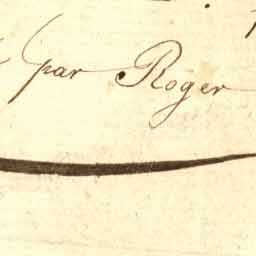 par Roger